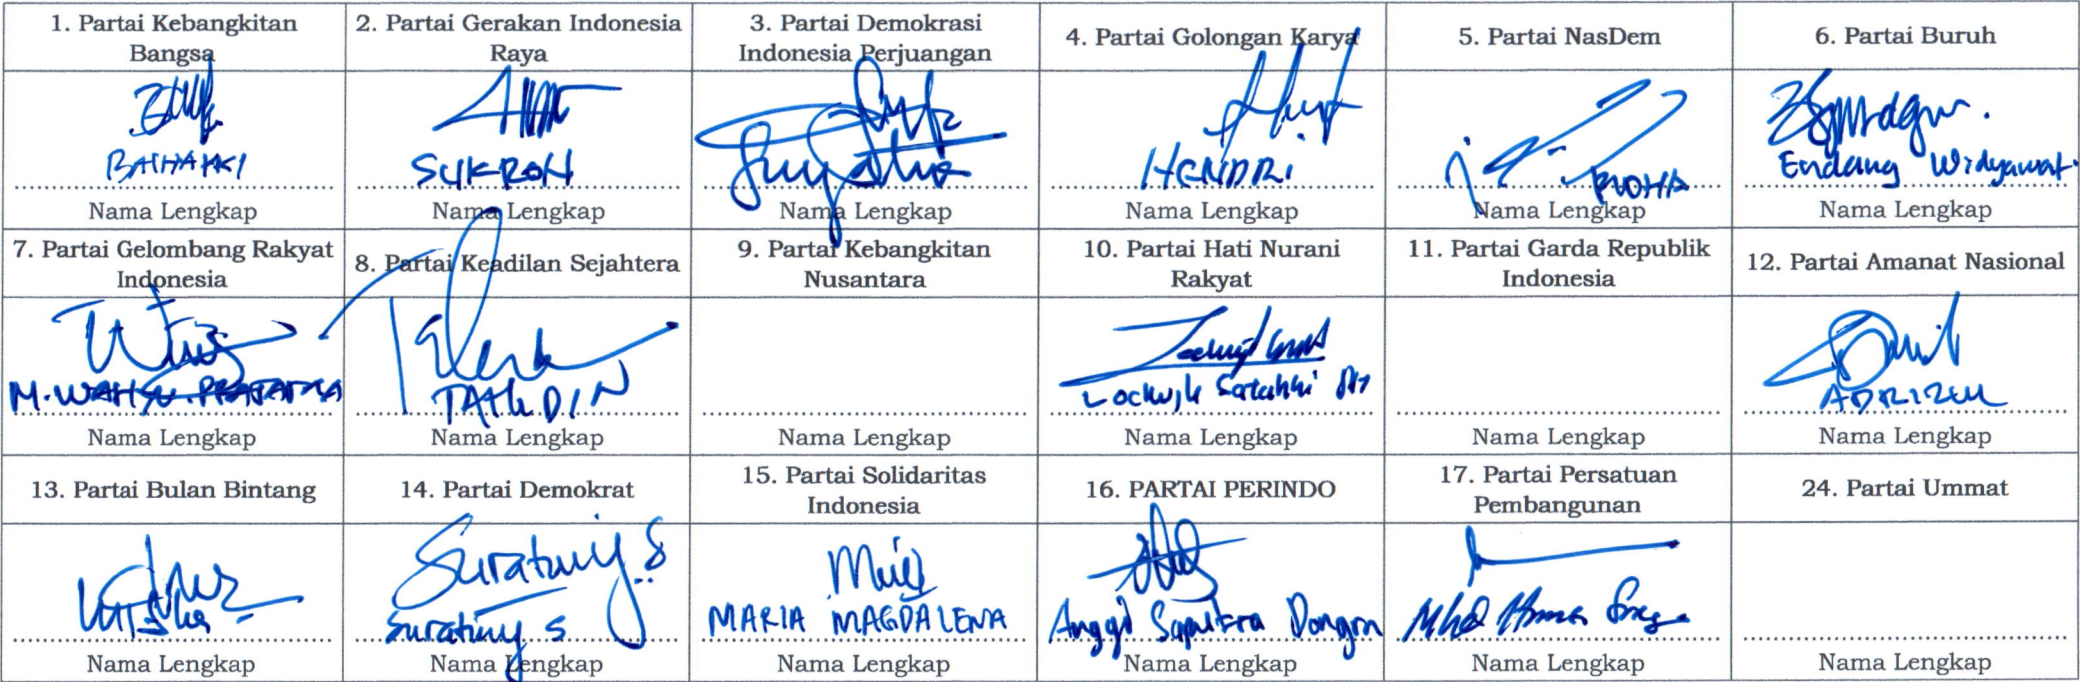 1. Partai Kebangkitan
Bangsa
2. Partai Gerakan Indonesia
Raya
3. Partai Demokrasi
Indonesia Perjuangan
4. Partai Golongan Karya
5. Partai NasDem
6. Partai Buruh
BAIHAKI
SUKRON
HENDRI
Endang Widyawat
Nama Lengkap
Nama Lengkap
Nama Lengkap
Nama Lengkap
Nama Lengkap
Nama Lengkap
7. Partai Gelombang Rakyat
Indonesia
8. Partai Keadilan Sejahtera
9. Partai Kebangkitan
Nusantara
10. Partai Hati Nurani
Rakyat
11. Partai Garda Republik
Indonesia
12. Partai Amanat Nasional
M. WAHYU. PRATAMA
Nama Lengkap
Nama Lengkap
Nama Lengkap
Nama Lengkap
Nama Lengkap
Nama Lengkap
13. Partai Bulan Bintang
14. Partai Demokrat
15. Partai Solidaritas
Indonesia
16. PARTAI PERINDO
17. Partai Persatuan
Pembangunan
24. Partai Ummat
Suratmy S
Suratmy S
MARIA MAGDALENA
Anggi Saputra
Nama Lengkap
Nama Lengkap
Nama Lengkap
Nama Lengkap
Nama Lengkap
Nama Lengkap